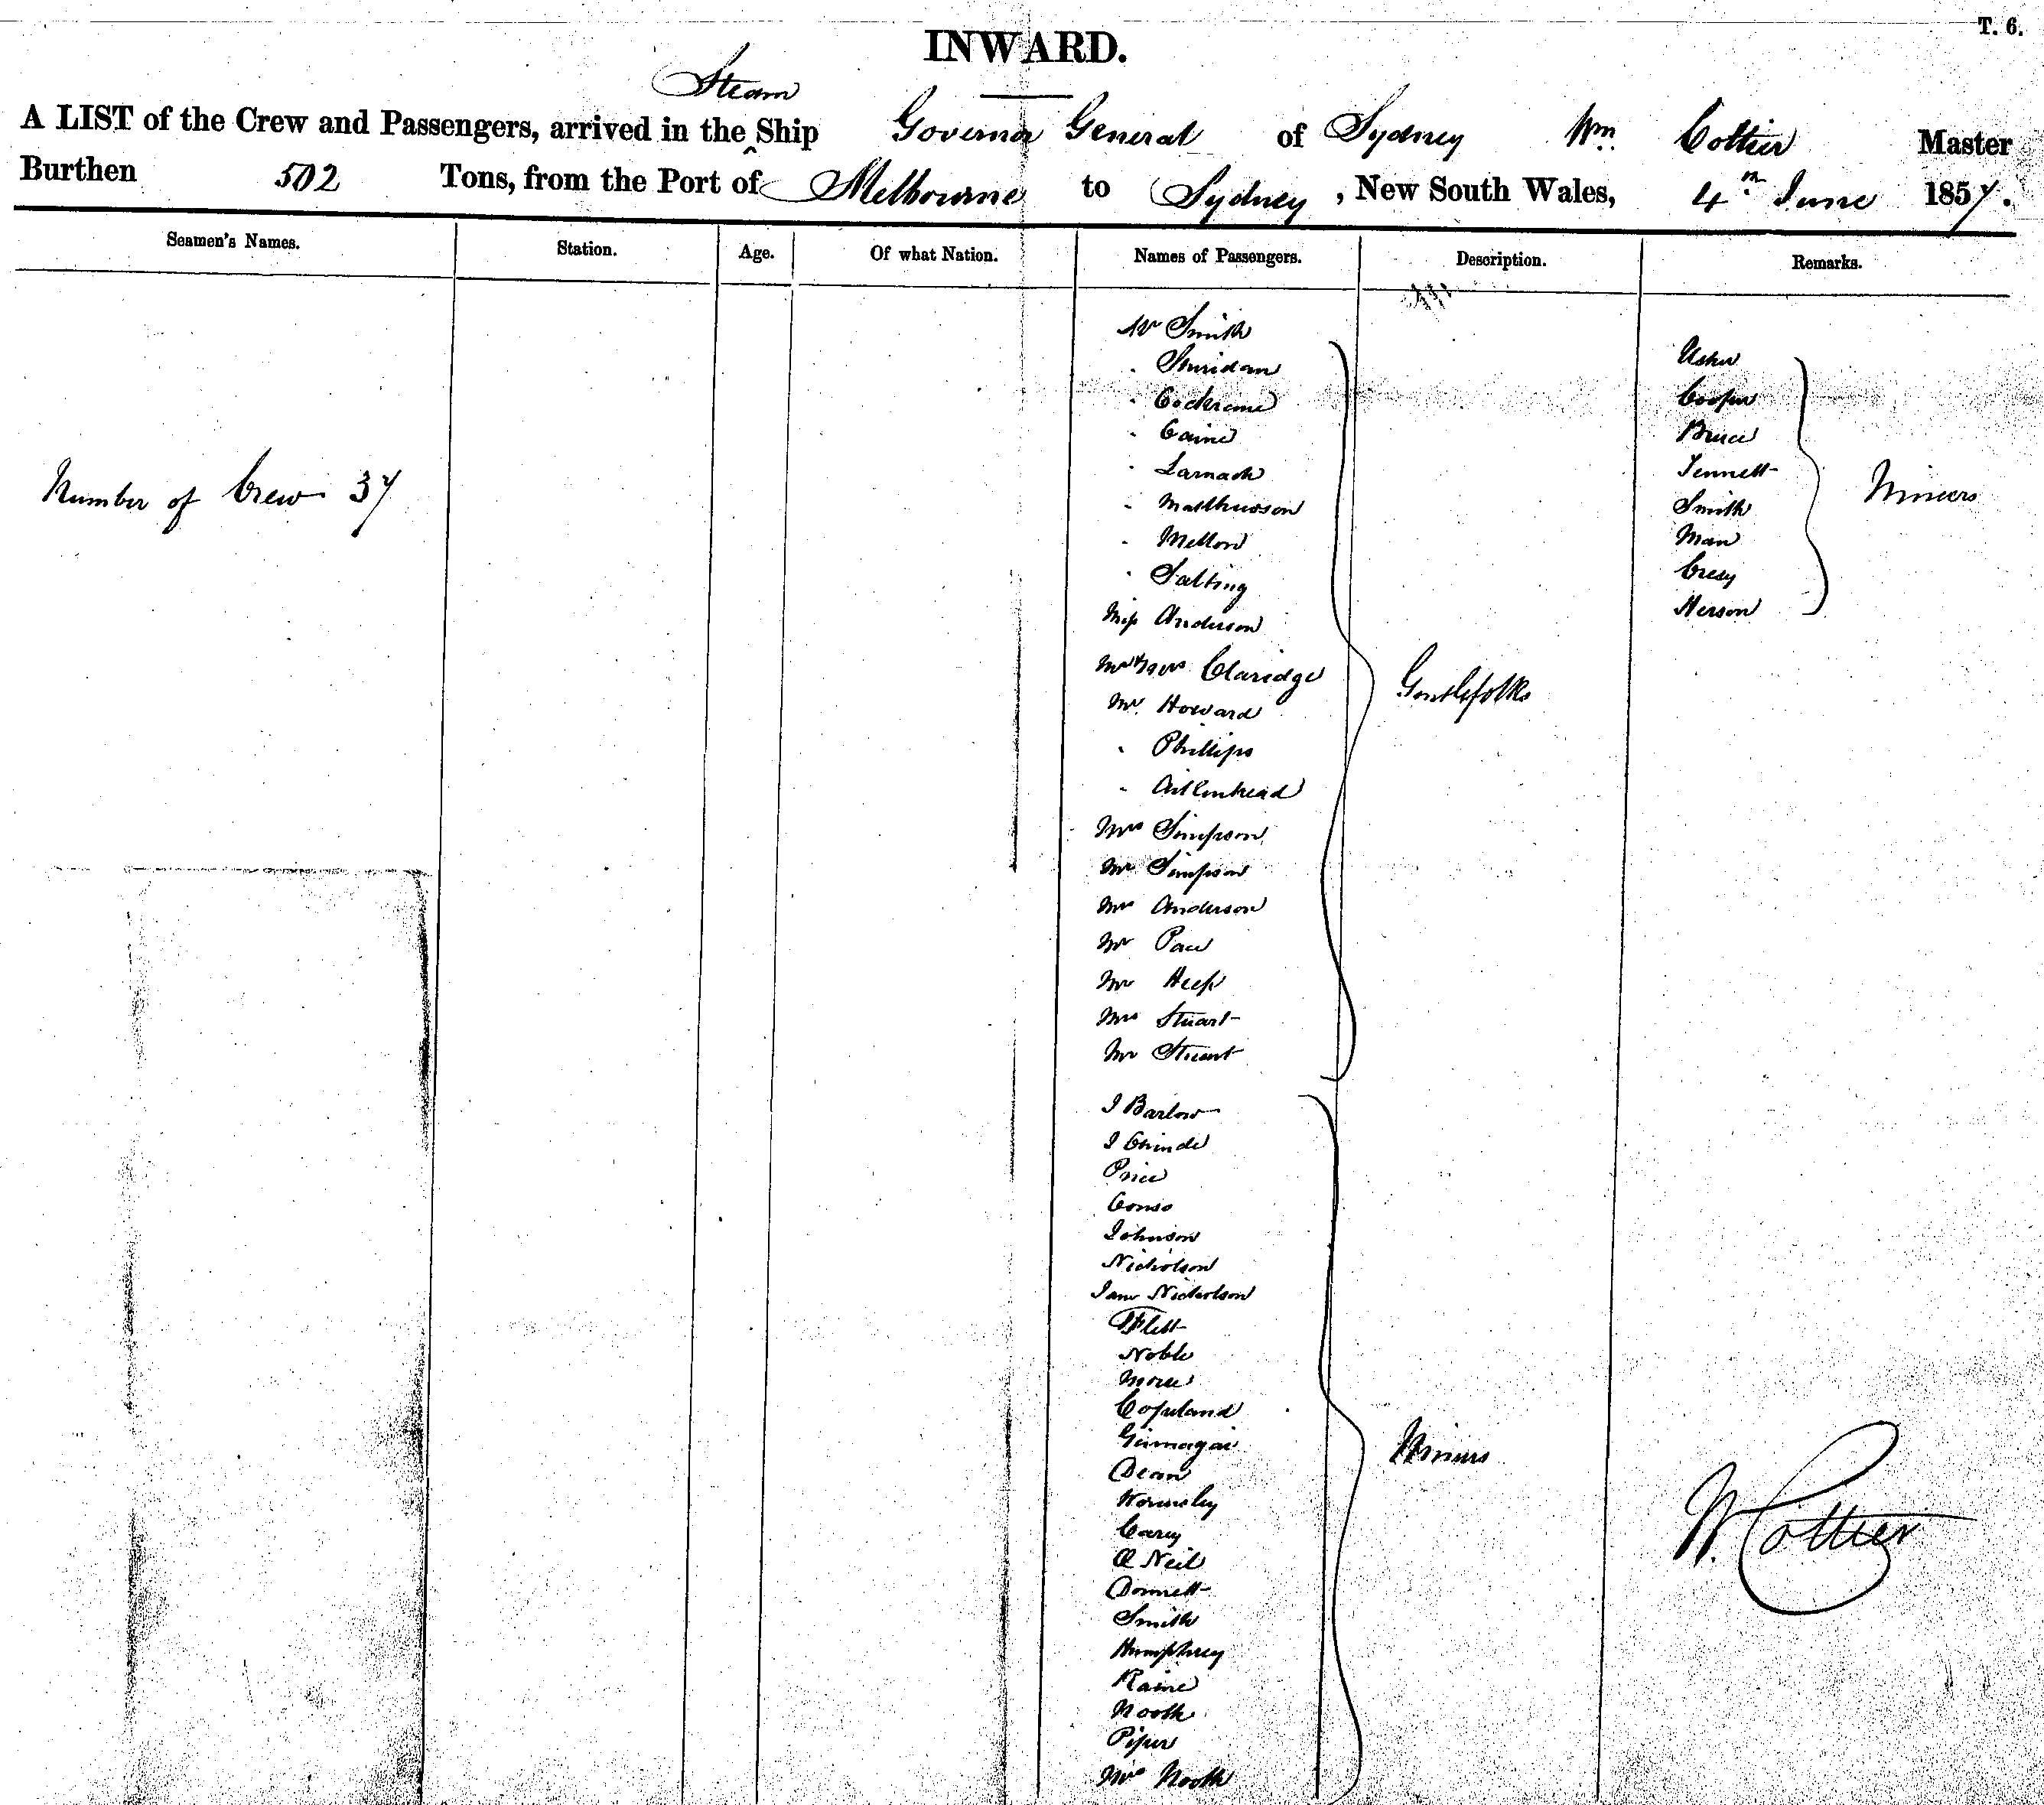 T. 6.
INWARD.
Steam
A LIST of the Crew and Passengers, arrived in the ^ Ship Governor General of Sydney Wm Cottier Master
Burthen 502 Tons, from the Port of Melbourne to Sydney, New South Wales, 4th June 1857.
Seamen's Names. Station. Age. Of what Nation. Names of Passengers. Description. Remarks.
Number of Crew 37
Mr Smith
" Sheridan
" Cochrane
" Caine
" Larnach
" Matthewson
" Mellon
" Salting
Miss Anderson
Mr & Mrs Claridge
Mr Howard
" Phillips
" Aitkenhead
Mrs Simpson
Mr Simpson
Mr Anderson
Mr
Mr Heep
Mrs Stuart
Mr Stuart
Gentlefolks
J Barlow
J
Price
Johnson
Nicholson
Jane Nicholson
Flett
Noble
Copeland
Dean
Wormsley
Carey
O Neil
Smith
Humphrey
Raine
Nooth
Piper
Mrs Nooth
Miners
Usher
Cooper
Bruce
Smith
Man
Herson
Miners
W. Cottier